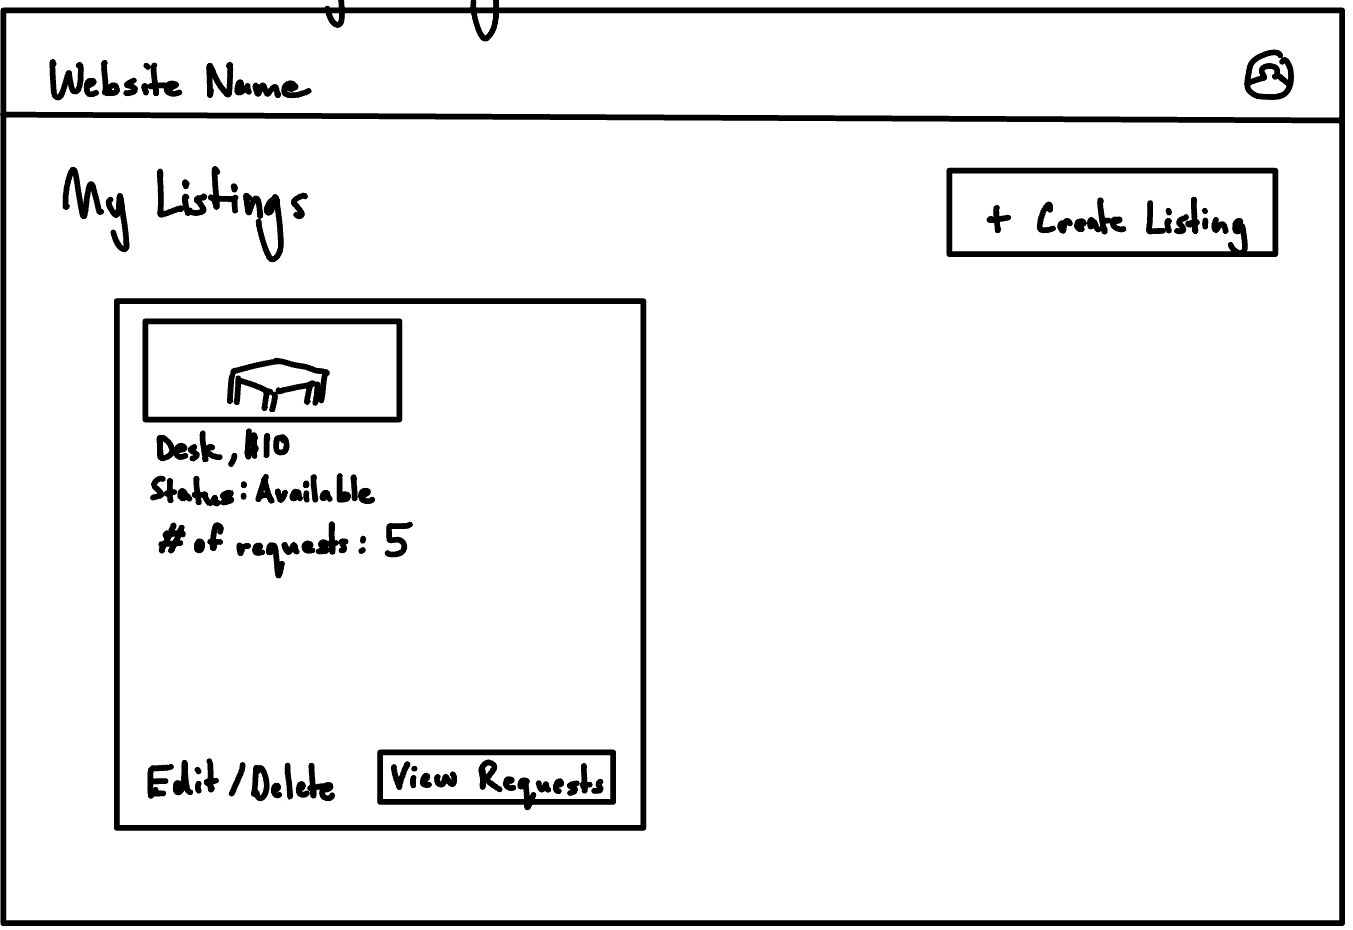 Website Name
My Listings
+ Create Listing
Desk, $10
Status: Available
# of requests: 5
Edit/Delete
View Requests